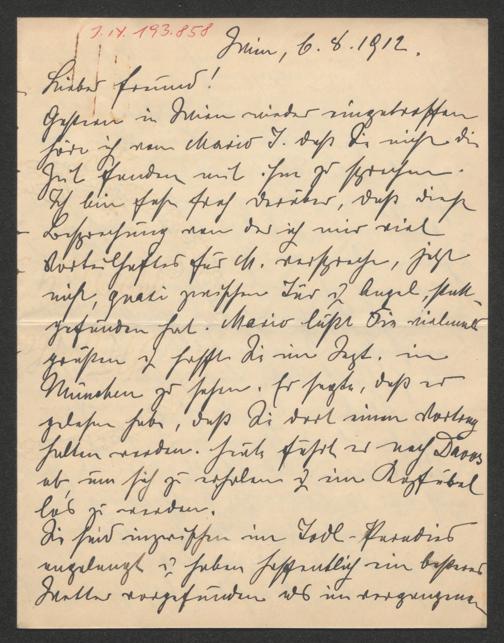 I.IX. 193.858
Wien, 6.8.1912.
Lieber Freund!
Gestern in Wien wieder eingetroffen
höre ich von Mario J. daß Sie nicht die
Zeit fanden mit ihm zu sprechen.
Ich bin sehr froh darüber, daß diese
Besprechung von der ich mir viel
Vorteilhaftes für M. verspreche, jetzt
nicht, quasi zwischen Tür u. Angel, statt-
gefunden hat. Mario läßt Sie vielmals
grüßen u. hofft Sie im Sept. in
München zu sehen. Er sagte, daß er
gelesen habe, daß Sie dort einen Vortrag
halten werden. Heute fährt er nach Davos
ab um sich zu erholen u. im Kopf übel
los zu werden.
Sie sind inzwischen im Jodl-Paradies
angelangt u. haben hoffentlich ein besseres
Wetter vorgefunden als im vergangenen